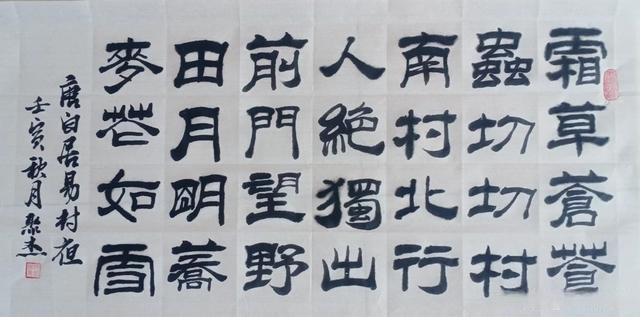 霜草蒼蒼
蟲切切村
南村北行
人絶獨出
前門望野
田月明蕎
麥花如雪
唐白居易村夜
壬寅秋月聚杰